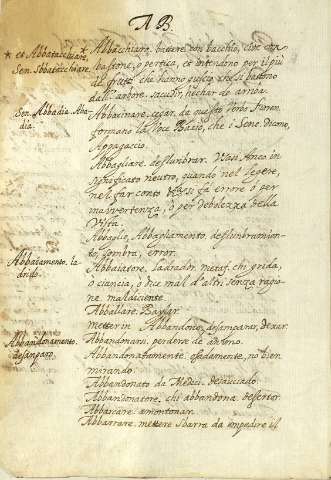 A B.
* et Abbatacchiare,
Sen. Sbatacchiare.
Abbacchiare, battere con bacchio, cioè con
bastone, o pertica, et intendono per il più
de frutti che hanno guscio, che si battono
dall' arbore. sacudir, hechar de arriba.
Sen. Abbadia, Ba
dia.
Abbacinare, cegar, da questo Verbo
formano la Voce Bacìo, che i Sene. dicono,
Appagaccio.
Abbagliare. deslunbrar. Usasi Anco in
significato neutro, quando nel legere,
nel far conto si fa errore o per
inavvertenza, o per debolezza della
Vista.
Abbaglio, Abbagliamento. deslunbramien-
to, sombra, error.
Abbaiamento. la
drido.
Abbaiatore, ladrador. metaf. chi grida,
o ciancia, o dice mal d'altri senza ragio
ne. maldiciente.
Abballare. Baylar.
mettere in Abbandono, desamparar, dexar.
Abbandonamento.
desamparo.
Abbandonarsi, perderse de animo.
Abbandonatamente. osadamente, no bien
mirando.
Abbandonato da Medici. desauciado.
Abbandonatore. chi abbandona. desertor.
Abbarcare. amontonar.
Abbarrare. mettere sbarra da impedire il